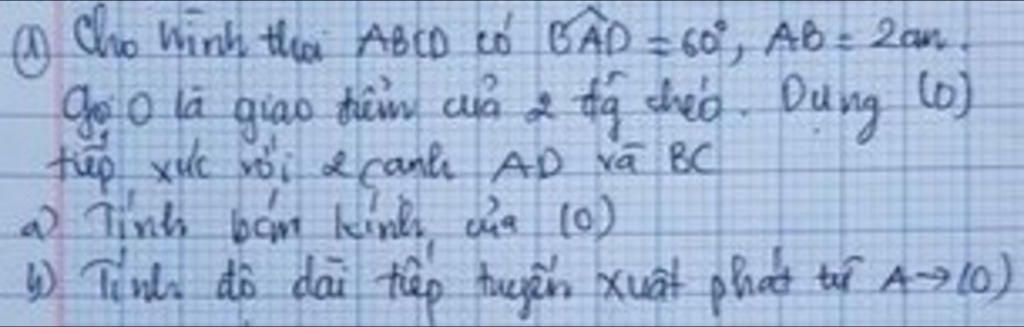 ① Cho hình thoi ABCD có BAD = 60°, AB = 2cm.
Gọi O là giao điểm của 2 đg chéo. Dựng (O)
tiếp xúc với 2 cạnh AD và BC
a) Tính bán kính của (O)
b) Tính độ dài tiếp tuyến xuất phát từ A → (O)